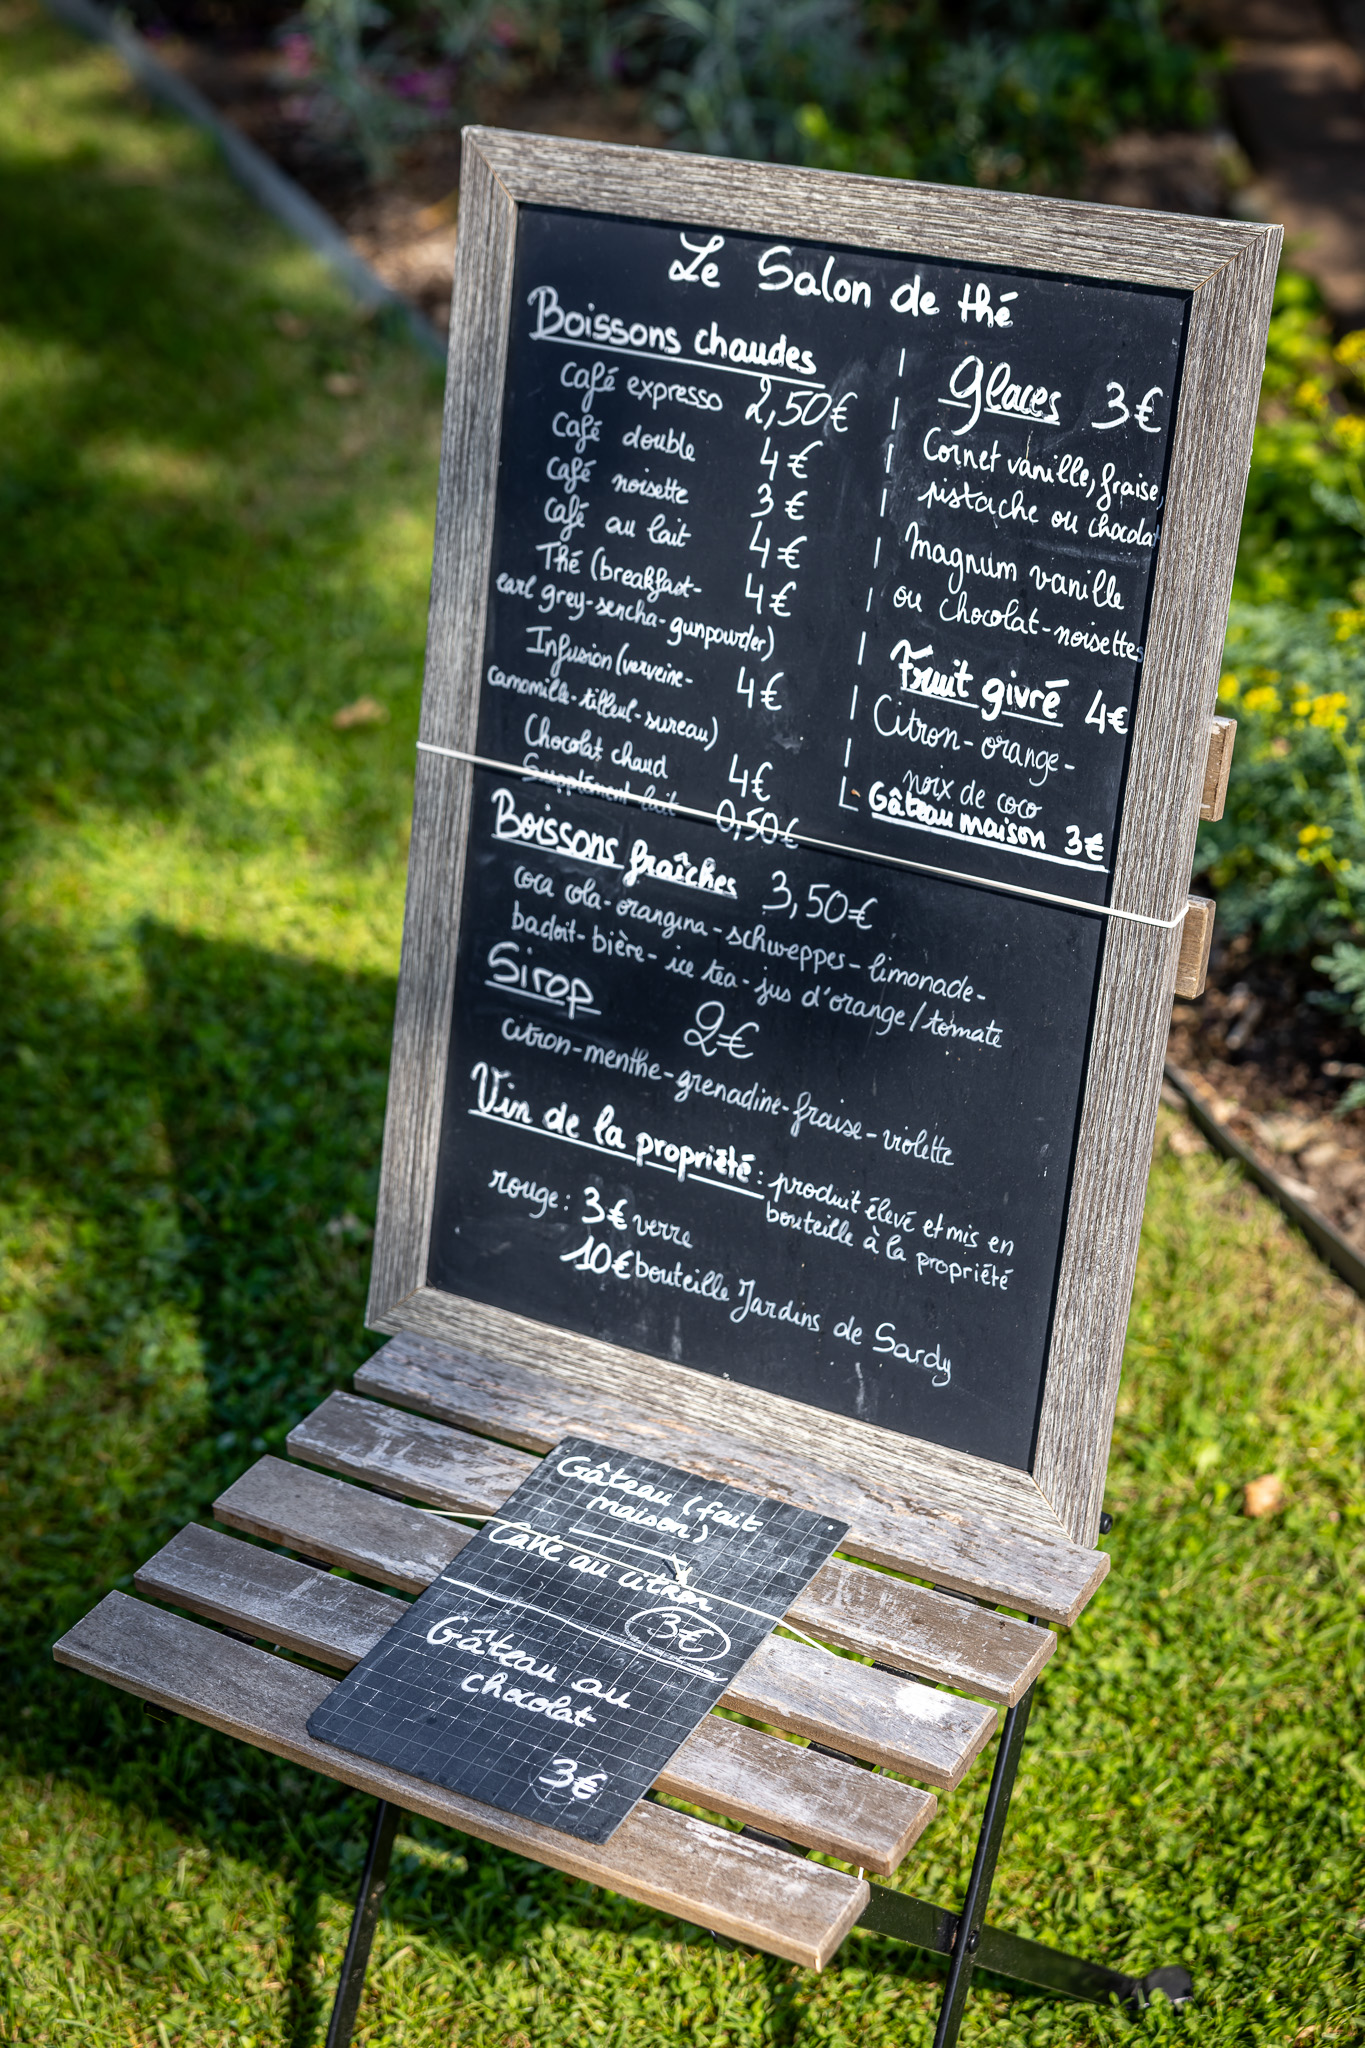 Le Salon de thé
Boissons chaudes
Café expresso 2,50€
Café double 4€
Café noisette 3€
Café au lait 4€
Thé (breakfast- 4€
earl grey-sencha-gunpowder)
Infusion (verveine- 4€
camomille-tilleul-sureau)
Chocolat chaud 4€
Supplément lait 0,50€
Glaces 3€
Cornet vanille, fraise,
pistache ou chocolat
Magnum vanille
ou chocolat-noisettes
Fruit givré 4€
Citron-orange-
noix de coco
Gâteau maison 3€
Boissons fraîches 3,50€
coca cola-orangina-schweppes-limonade-
badoit-bière-ice tea-jus d'orange/tomate
Sirop 2€
citron-menthe-grenadine-fraise-violette
Vin de la propriété: produit élevé et mis en
bouteille à la propriété
rouge: 3€ verre
10€ bouteille Jardins de Sardy
Gâteau (fait
maison)
Cake au citron
3€
Gâteau au
chocolat
3€